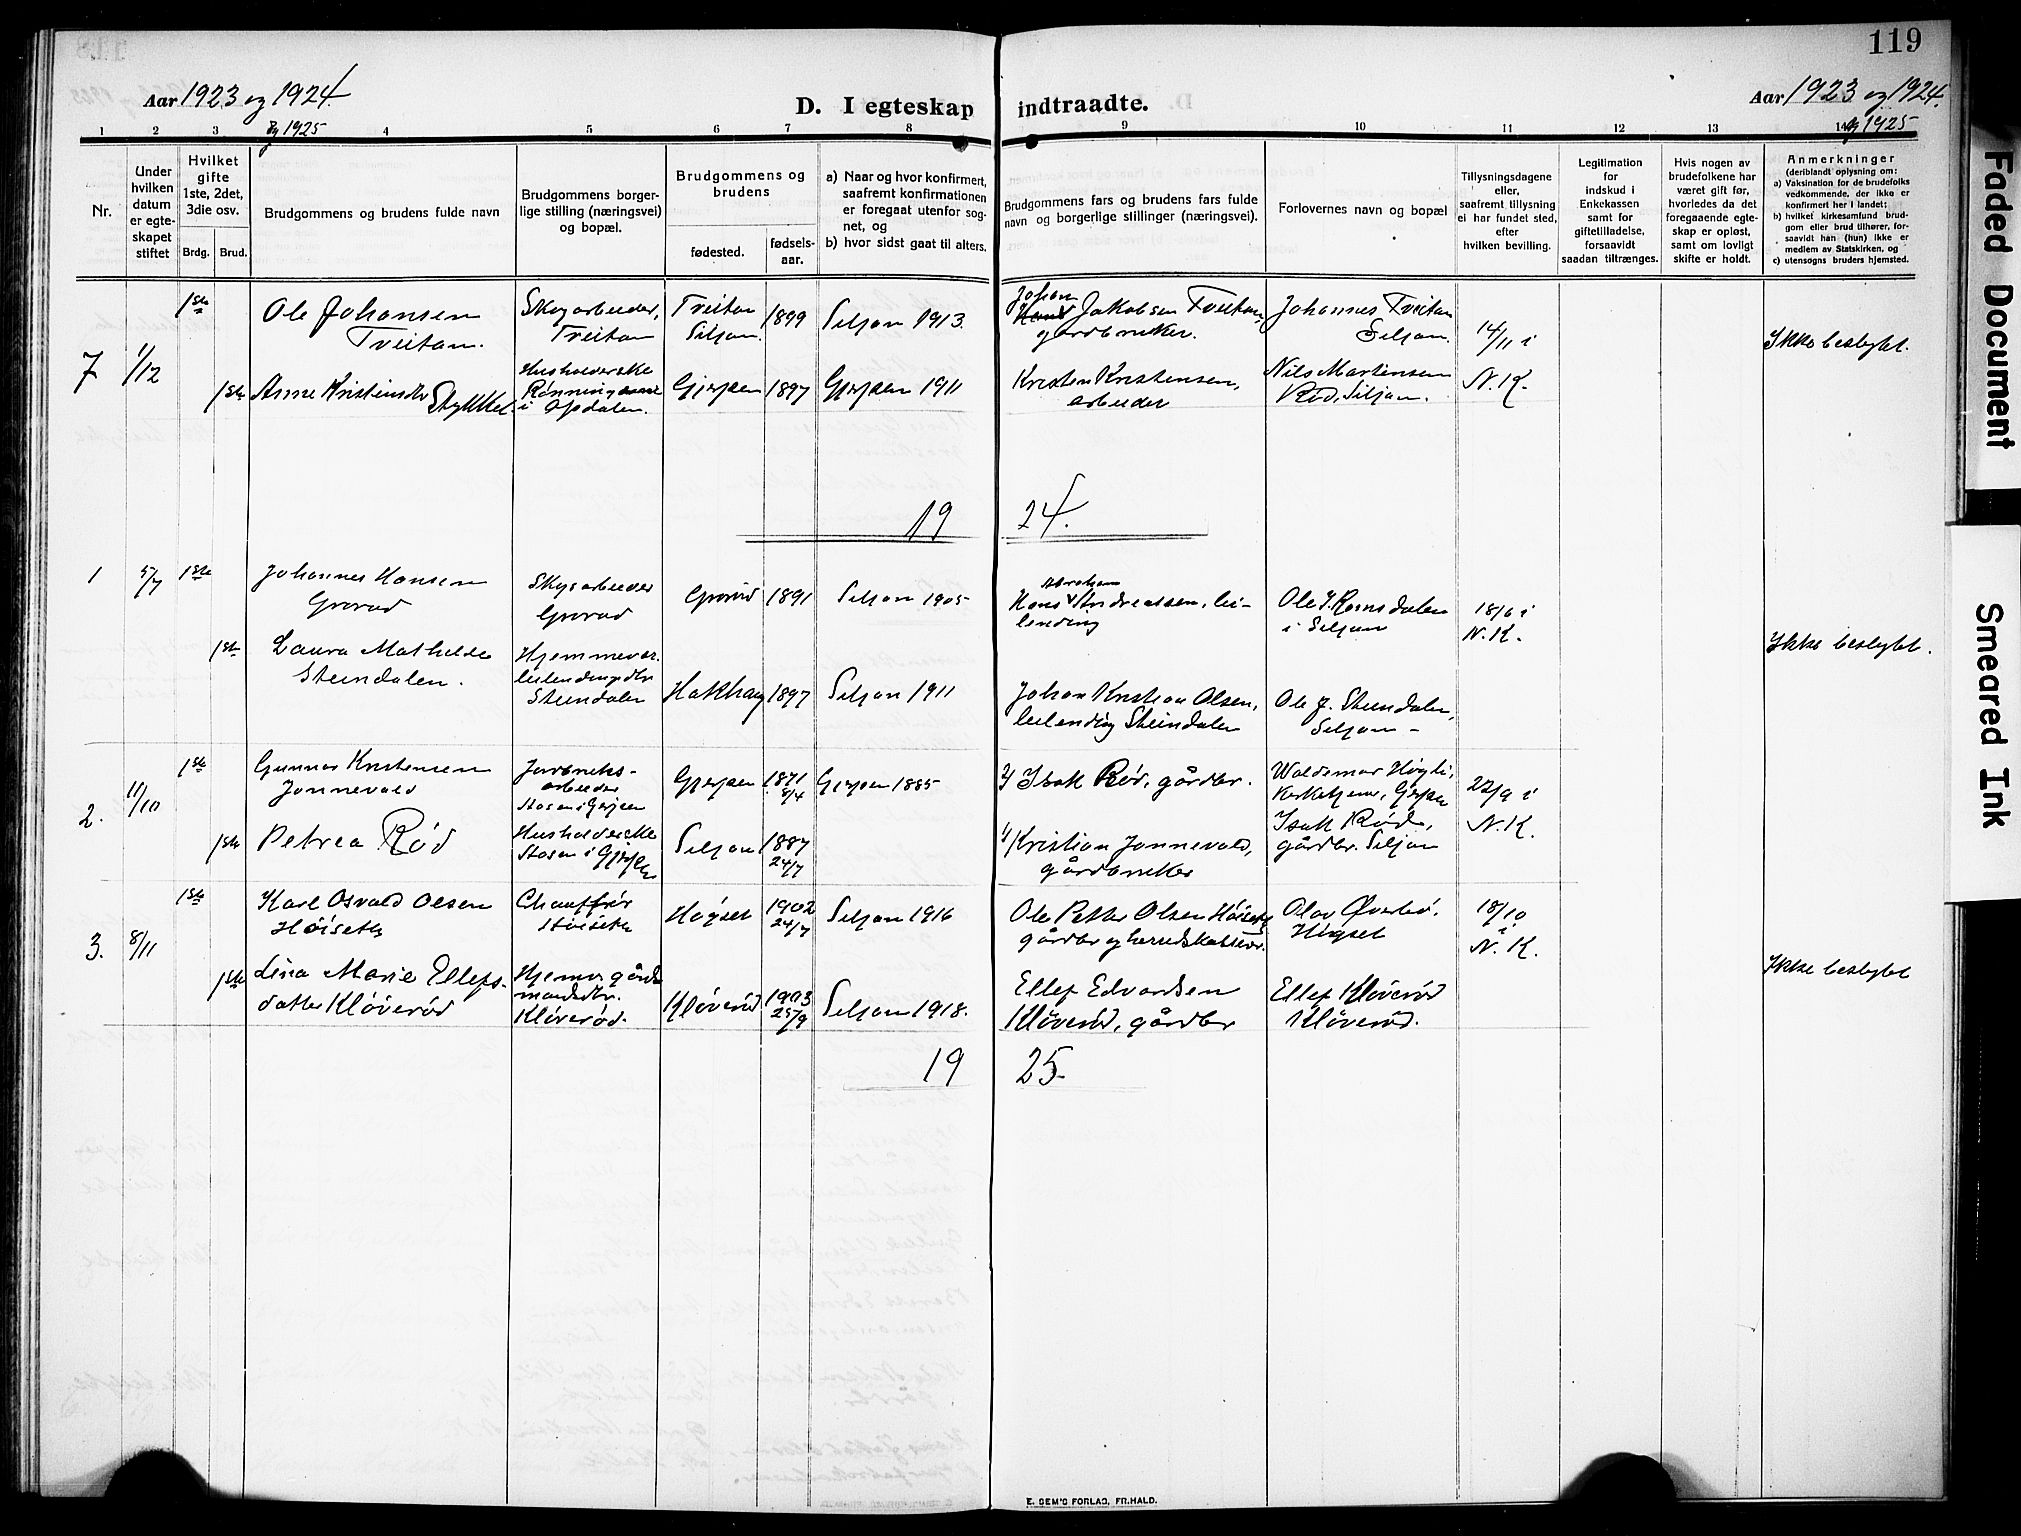 119
Aar 1923 og 1924
og 1925
D. I egteskap indtraadte.
Aar 1923 og 1924.
og 1925
1 2 3 4 5 6 7 8 9 10 11 12 13 14
Nr.
Under hvilken datum er egteskapet stiftet
Hvilket gifte 1ste, 2det, 3die osv.
Brdg. Brud.
Brudgommens og brudens fulde navn
Brudgommens borgerlige stilling (næringsvei) og bopæl.
Brudgommens og brudens
fødested.
fødselsaar.
a) Naar og hvor konfirmert, saafremt konfirmationen er foregaat utenfor sognet, og
b) hvor sidst gaat til alters.
Brudgommens fars og brudens fars fulde navn og borgerlige stillinger (næringsvei).
Forlovernes navn og bopæl
Tillysningsdagene eller, saafremt tillysning ei har fundet sted, efter hvilken bevilling.
Legitimation for indskud i Enkekassen samt for giftetilladelse, forsaavidt saadan tiltrænges.
Hvis nogen av brudefolkene har været gift før, hvorledes da det foregaaende egteskap er opløst, samt om lovligt skifte er holdt.
Anmerkninger
(deriblandt oplysning om:
a) Vaksination for de brudefolks vedkommende, der ikke er konfirmert her i landet;
b) hvilket kirkesamfund brudgom eller brud tilhører, forsaavidt han (hun) ikke er medlem av Statskirken, og
c) utensogns bruders hjemsted.
7 1/12
1ste Ole Johansen Tveitan. Skogarbeider, Tveitan Tveitan Siljan. 1899 Siljan 1913. Johan Jakobsen Tveitan, gårdbruker. Johannes Tveitan Siljan. 14/11 i N.K. Ikke beslegtet.
1ste Anne Kristensdtr Stykket. Husholderske Rønningene i Opdalen. Gjerpen 1897 Gjerpen 1911 Kristen Kristensen, arbeider Nils Martinsen Rød, Siljan.
19 24.
1 5/7
1ste Johannes Hansen Grorud Skogsarbeider Grorud Grorud 1891 Siljan 1905 Hans Abraham Andreassen, leilending Ole J. Ramsdalen i Siljan 18/6 i N.K. Ikke beslegtet.
1ste Laura Mathilde Steindalen. Hjemmevær. leilendingsdtr Steindalen Hakhaug 1897 Siljan 1911 Johan Kristian Olsen, leilending Steindalen Ole J. Steindalen, Siljan –
2. 11/10
1ste Gunnar Kristensen Jonnevald Jordbruksarbeider Stosen i Gjerpen Gjerpen 1871 8/4 Gjerpen 1885 2) Isak Rød, gårdbr. Waldemar Høgli, Kirketjener, Gjerpen 22/9 i N.K.
1ste Petrea Rød Husholderske Stosen i Gjerpen Siljan 1887 24/7 1) Kristian Jonnevald, gårdbruker Isak Rød, gårdbr. Siljan
3. 8/11
1ste Karl Osvald Olsen Høiseth Chauffør Høiseth Høgset 1902 24/7 Siljan 1916 Ole Petter Olsen Høiseth gårdbr og herredskasserer. Olav Øverbø, Høgset 18/10 i N.K. Ikke beslegtet
1ste Lina Marie Ellefsdatter Kløverød Hjemv. gårdmandsdtr. Kløverød. Kløverød 1903 25/9 Siljan 1918. Ellef Edvardsen Kløverød, gårdbr Ellef Kløverød Kløverød.
19 25.
E. SEM'S FORLAG, FR.HALD.
Faded Document
Smeared Ink